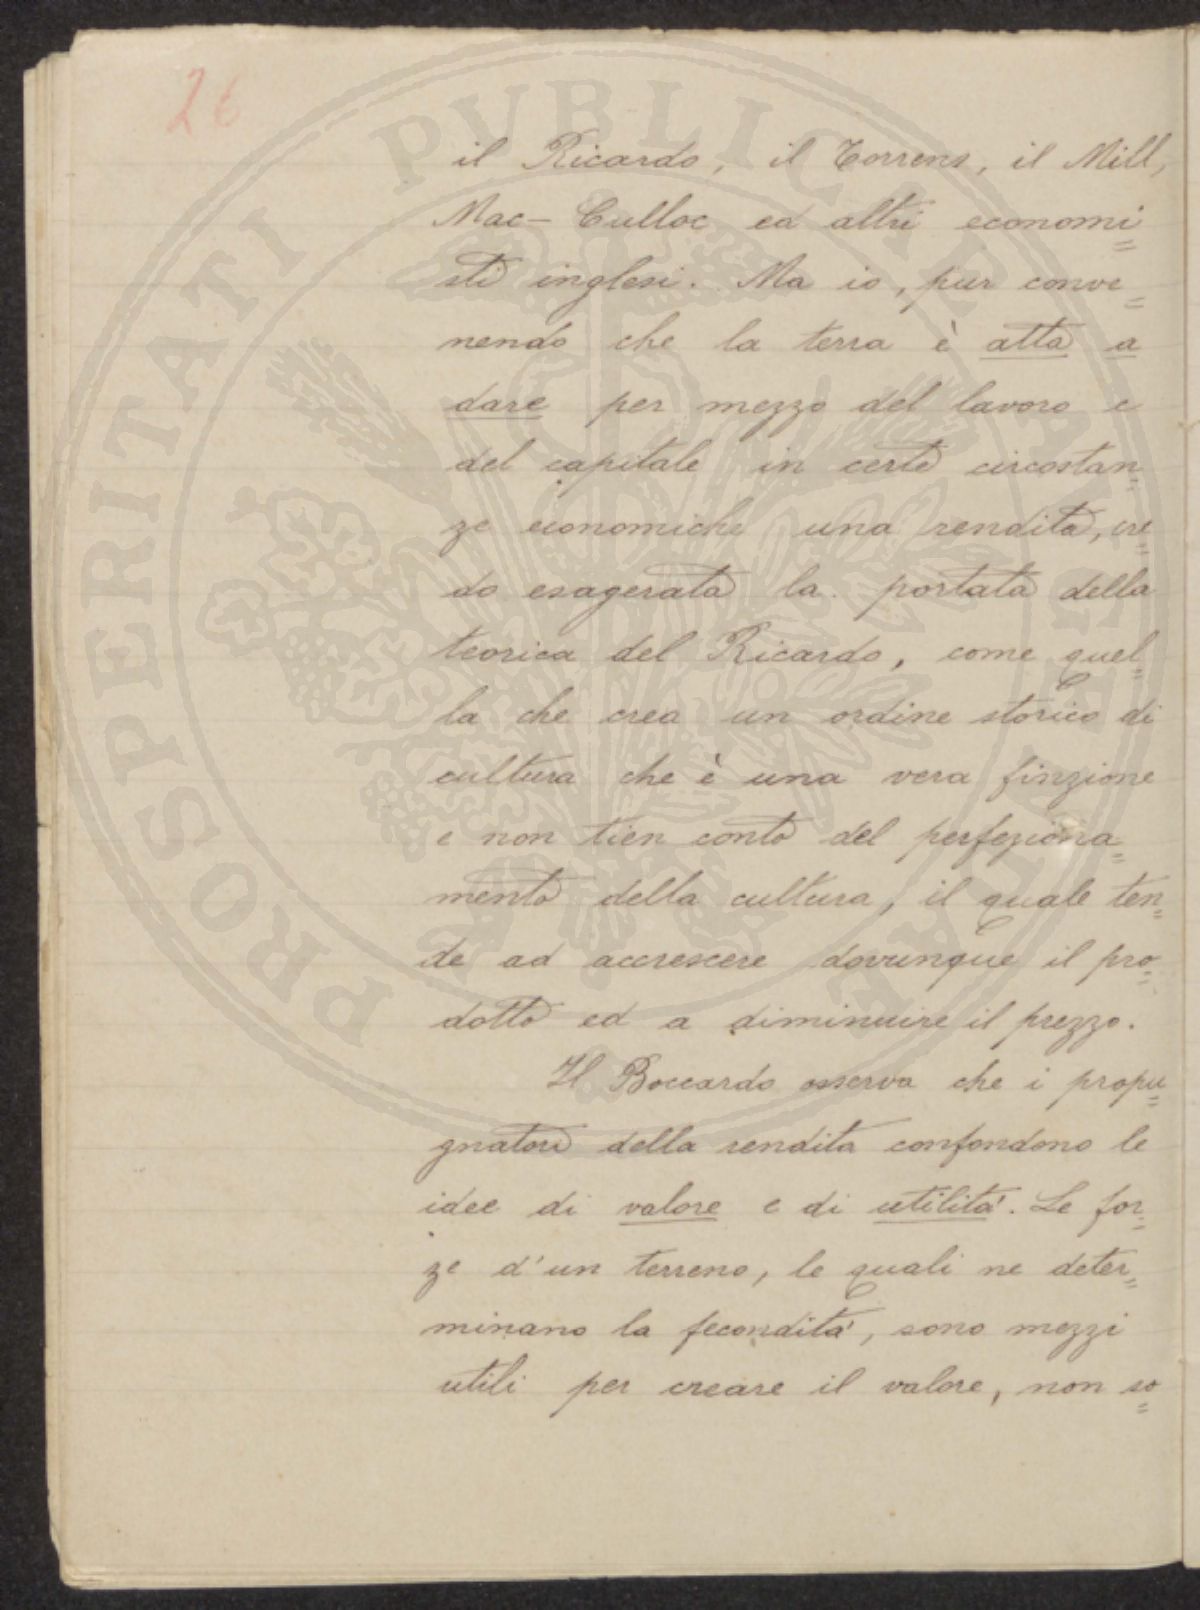 26
il Ricardo, il Torrens, il Mill,
Mac-Culloc ed altri economi=
sti inglesi. Ma io, pur conve=
nendo che la terra è atta a
dare per mezzo del lavoro e
del capitale in certe circostan=
ze economiche una rendita, cre=
do esagerata la portata della
teorica del Ricardo, come quel=
la che crea un ordine storico di
cultura che è una vera finzione
e non tien conto del perfeziona=
mento della cultura, il quale ten=
de ad accrescere dovunque il pro=
dotto ed a diminuire il prezzo.
Il Boccardo osserva che i propu=
gnatori della rendita confondono le
idee di valore e di utilità. Le for=
ze d'un terreno, le quali ne deter=
minano la fecondità, sono mezzi
utili per creare il valore, non so=
PROSPERITATI PUBLICAE AUGENDAE